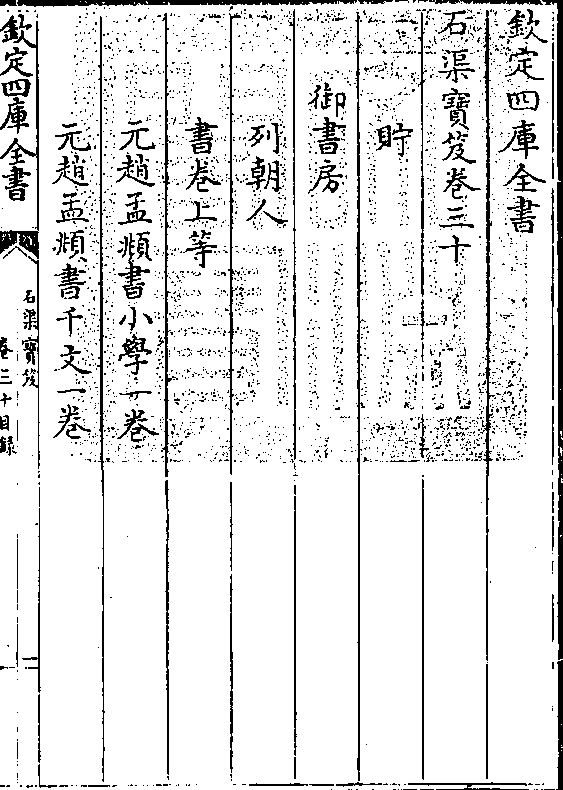 欽定四庫全書
石渠寶笈卷三十
貯
御書房
列朝人
書卷上等
元趙孟頫書小學一卷
元趙孟頫書千文一卷
欽定四庫全書
石渠寶笈
卷三十目錄
一